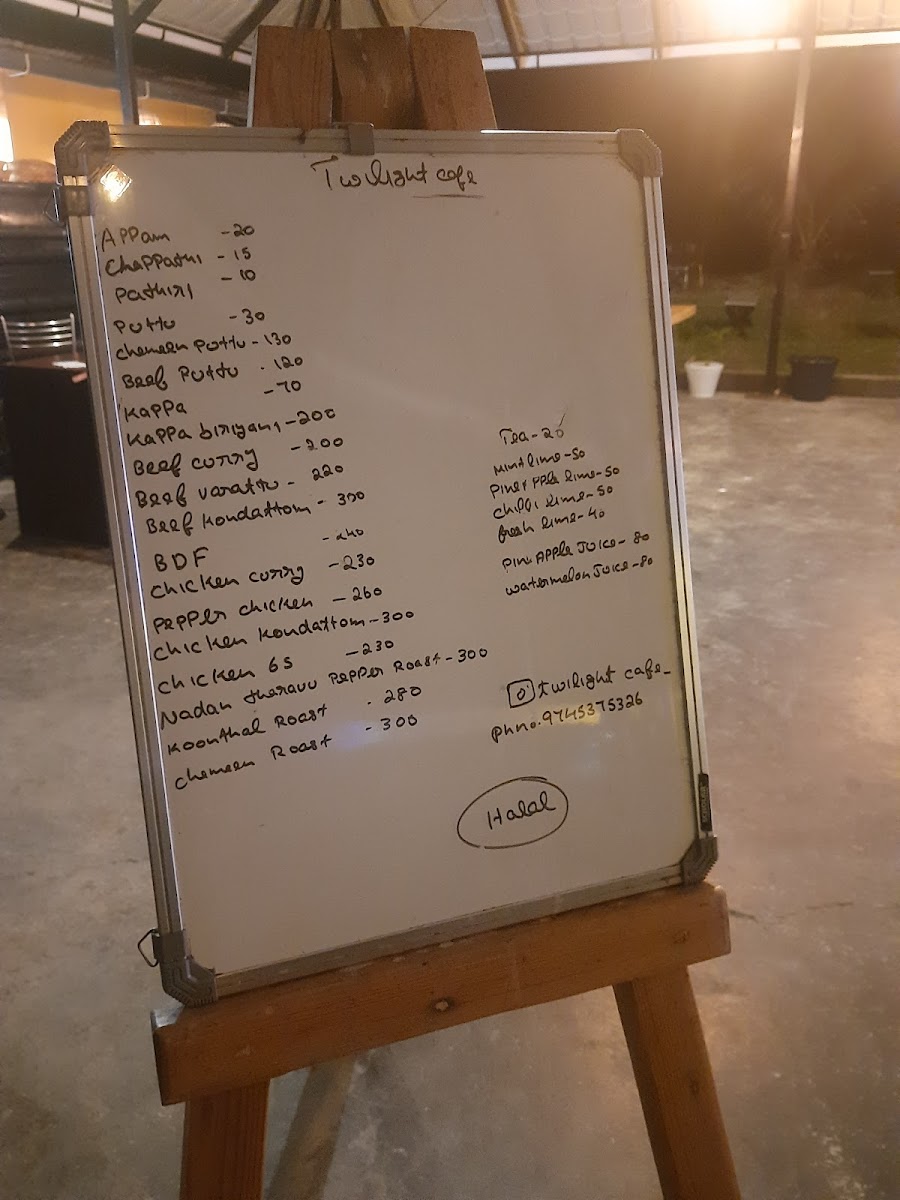 Twilight cafe
Appam - 20
Chappathi - 15
Pathiri - 10
Puttu - 30
Chemeen Puttu - 130
Beef Puttu - 120
Kappa - 70
Kappa biriyani - 200
Beef curry - 200
Beef varattu - 220
Beef Kondattom - 300
BDF
Chicken curry - 230
Pepper chicken - 260
Chicken Kondattom - 300
Chicken 65 - 230
Nadan tharavu Pepper Roast - 300
Koonthal Roast - 280
Chemeen Roast - 300
Tea - 20
Mint lime - 50
Pineapple lime - 50
Chilli lime - 50
fresh lime - 40
PineApple Juice - 80
Watermelon Juice - 80
twilight cafe_
Phno. 9745375326
Halal